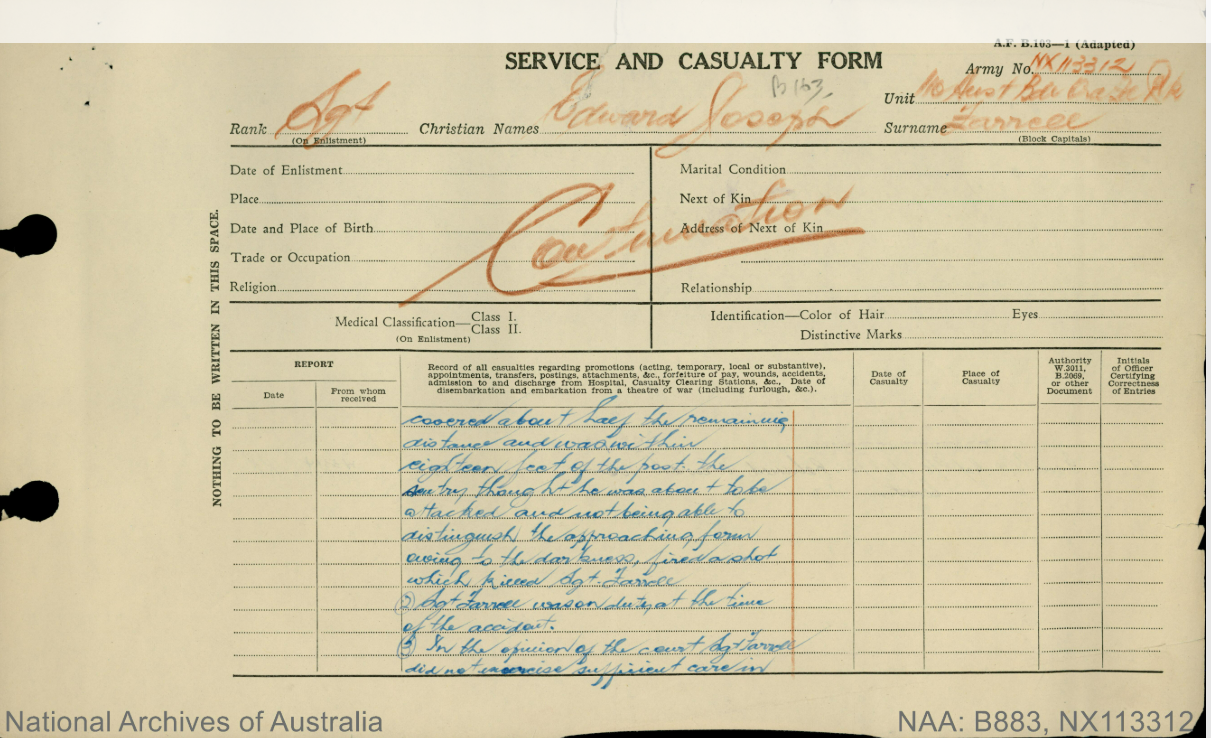 A.F. B.103—1 (Adapted)
SERVICE AND CASUALTY FORM
Army No. NX113312
B 103.
Unit 110 Aust
Rank Sgt Christian Names Edward Joseph Surname Farrell
(On Enlistment) (Block Capitals)
Date of Enlistment
Place
Date and Place of Birth
Trade or Occupation
Religion
Marital Condition
Next of Kin
Address of Next of Kin
Relationship
Continuation
Medical Classification—Class I.
Class II.
(On Enlistment)
Identification—Color of Hair Eyes
Distinctive Marks
NOTHING TO BE WRITTEN IN THIS SPACE.
REPORT
Date
From whom received
Record of all casualties regarding promotions (acting, temporary, local or substantive),
appointments, transfers, postings, attachments, &c., forfeiture of pay, wounds, accidents,
admission to and discharge from Hospital, Casualty Clearing Stations, &c., Date of
disembarkation and embarkation from a theatre of war (including furlough, &c.).
Date of Casualty
Place of Casualty
Authority W.3011, B.2069, or other Document
Initials of Officer Certifying Correctness of Entries
covered about half the remaining
distance and was within
eighteen feet of the post. the
sentry thought he was about to be
attacked and not being able to
distinguish the approaching form
owing to the darkness, fired a shot
which killed Sgt. Farrell
(2) Sgt Farrell was on duty at the time
of the accident.
(3) In the opinion of the court Sgt Farrell
did not exercise sufficient care in
National Archives of Australia
NAA: B883, NX113312